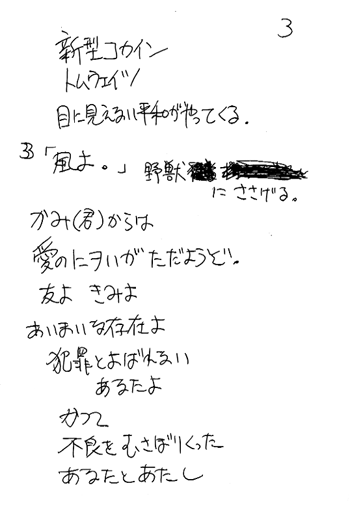 3
新型コカイン
トムウェイツ
目に見えない平和がやってくる.
3「風よ。」野獣
にささげる。
かみ(君)からは
愛のにヲいがただようど。
友よ きみよ
あいまいな存在よ
犯罪とよばれない
あなたよ
かつて
不良をむさばりくった
あなたとあたし